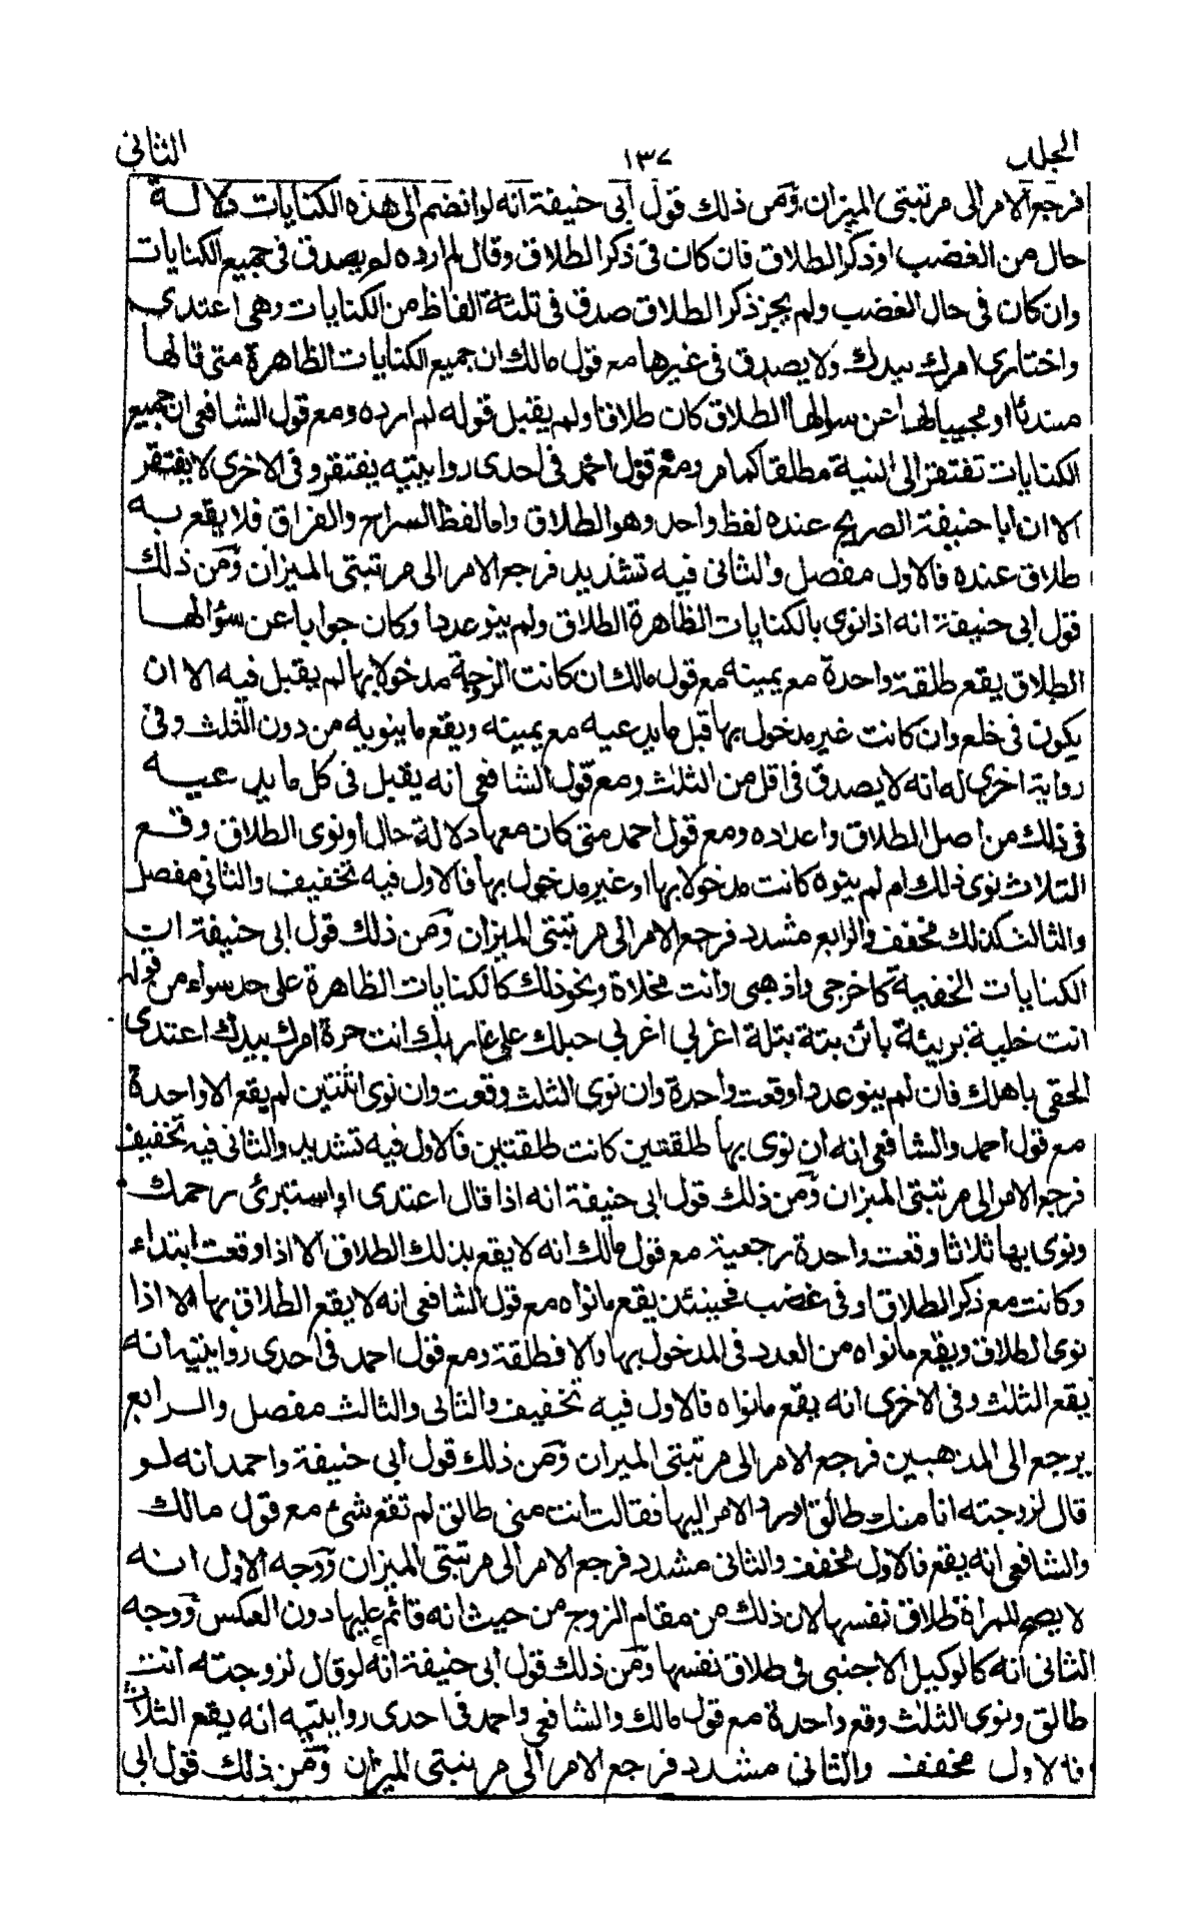 الجلد ١٣٧ الثانى
فرجع الامر الى مرتبتى الميزان ومن ذلك قول أبى حنيفة انه لو انضم الى هذه الكنايات دلالة
حال من الغضب او ذكر الطلاق فان كان فى ذكر الطلاق وقال لم ارده لم يصدق فى جميع الكنايات
وان كان فى حال الغضب ولم يجز ذكر الطلاق صدق فى ثلثة الفاظ من الكنايات وهى اعتدى
واختارى امرك بيدك ولا يصدق فى غيرها مع قول مالك ان جميع الكنايات الظاهرة متى قالها
مبتدئا او مجيبا لها عن سوالها الطلاق كان طلاقا ولم يقبل قوله لم ارده ومع قول الشافعى ان جميع
الكنايات تفتقر الى النية مطلقا كما مر ومع قول احمد فى احدى روايتيه يفتقر وفى الاخرى لا يفتقر
الا ان ابا حنيفة الصريح عنده لفظ واحد وهو الطلاق واما لفظ السراح والفراق فلا يقع به
طلاق عنده فالاول مفصل والثانى فيه تشديد فرجع الامر الى مرتبتى الميزان ومن ذلك
قول ابى حنيفة انه اذا نوى بالكنايات الظاهرة الطلاق ولم ينو عددا وكان جوابا عن سؤالها
الطلاق يقع طلقة واحدة مع يمينه مع قول مالك ان كانت الزوجة مدخولا بها لم يقبل فيه الا ان
يكون فى خلع وان كانت غير مدخول بها قبل ما يدعيه مع يمينه ويقع ما ينويه من دون الثلث وفى
رواية اخرى له انه لا يصدق فى اقل من الثلاث ومع قول الشافعى انه يقبل فى كل ما يدعيه
فى ذلك من اصل الطلاق واعداده ومع قول احمد متى كان معها دلالة حال او نوى الطلاق وقع
الثلاث نوى ذلك ام لم ينوه كانت مدخولا بها او غير مدخول بها فالاول فيه تخفيف والثانى مفصل
والثالث كذلك مخفف والرابع مشدد فرجع الامر الى مرتبتى الميزان ومن ذلك قول ابى حنيفة ان
الكنايات الخفية كاخرجى واذهبى وانت مخلاة ونحو ذلك كالكنايات الظاهرة على حد سواء من قوله
انت خلية بريئة بائن بتة بتلة اغربى اغربى حبلك على غاربك انت حرة امرك بيدك اعتدى
الحقى باهلك فان لم ينو عددا وقعت واحدة وان نوى الثلث وقعت وان نوى اثنتين لم يقع الا واحدة
مع قول احمد والشافعى انه ان نوى بها طلقتين كانت طلقتين فالاول فيه تشديد والثانى فيه تخفيف
فرجع الامر الى مرتبتى الميزان ومن ذلك قول ابى حنيفة انه اذا قال اعتدى او استبرئ رحمك
ونوى بها ثلاثا وقعت واحدة رجعية مع قول مالك انه لا يقع بذلك الطلاق الا اذا وقعت ابتداء
وكانت مع ذكر الطلاق او فى غضب فحينئذ يقع ما نواه مع قول الشافعى انه لا يقع الطلاق بها الا اذا
نوى الطلاق ويقع ما نواه من العدد فى المدخول بها والا فطلقة ومع قول احمد فى احدى روايتيه انه
يقع الثلاث وفى الاخرى انه يقع ما نواه فالاول فيه تخفيف والثانى والثالث مفصل والرابع
يرجع الى المذهبين فرجع الامر الى مرتبتى الميزان ومن ذلك قول أبى حنيفة واحمد انه لو
قال لزوجته انا منك طالق او رد الامر اليها فقالت انت منى طالق لم تقع شئ مع قول مالك
والشافعى انه يقع فالاول مخفف والثانى مشدد فرجع الامر الى مرتبتى الميزان ووجه الاول انه
لا يصح للمراة طلاق نفسها لان ذلك من مقام الزوج من حيث انه قائم عليها دون العكس ووجه
الثانى انه كالوكيل الاجنبى فى طلاق نفسها ومن ذلك قول أبى حنيفة انه لو قال لزوجته انت
طالق ونوى الثلاث وقع واحدة مع قول مالك والشافعى واحمد فى احدى روايتيه انه يقع الثلاث
فالاول مخفف والثانى مشدد فرجع الامر الى مرتبتى الميزان ومن ذلك قول ابى